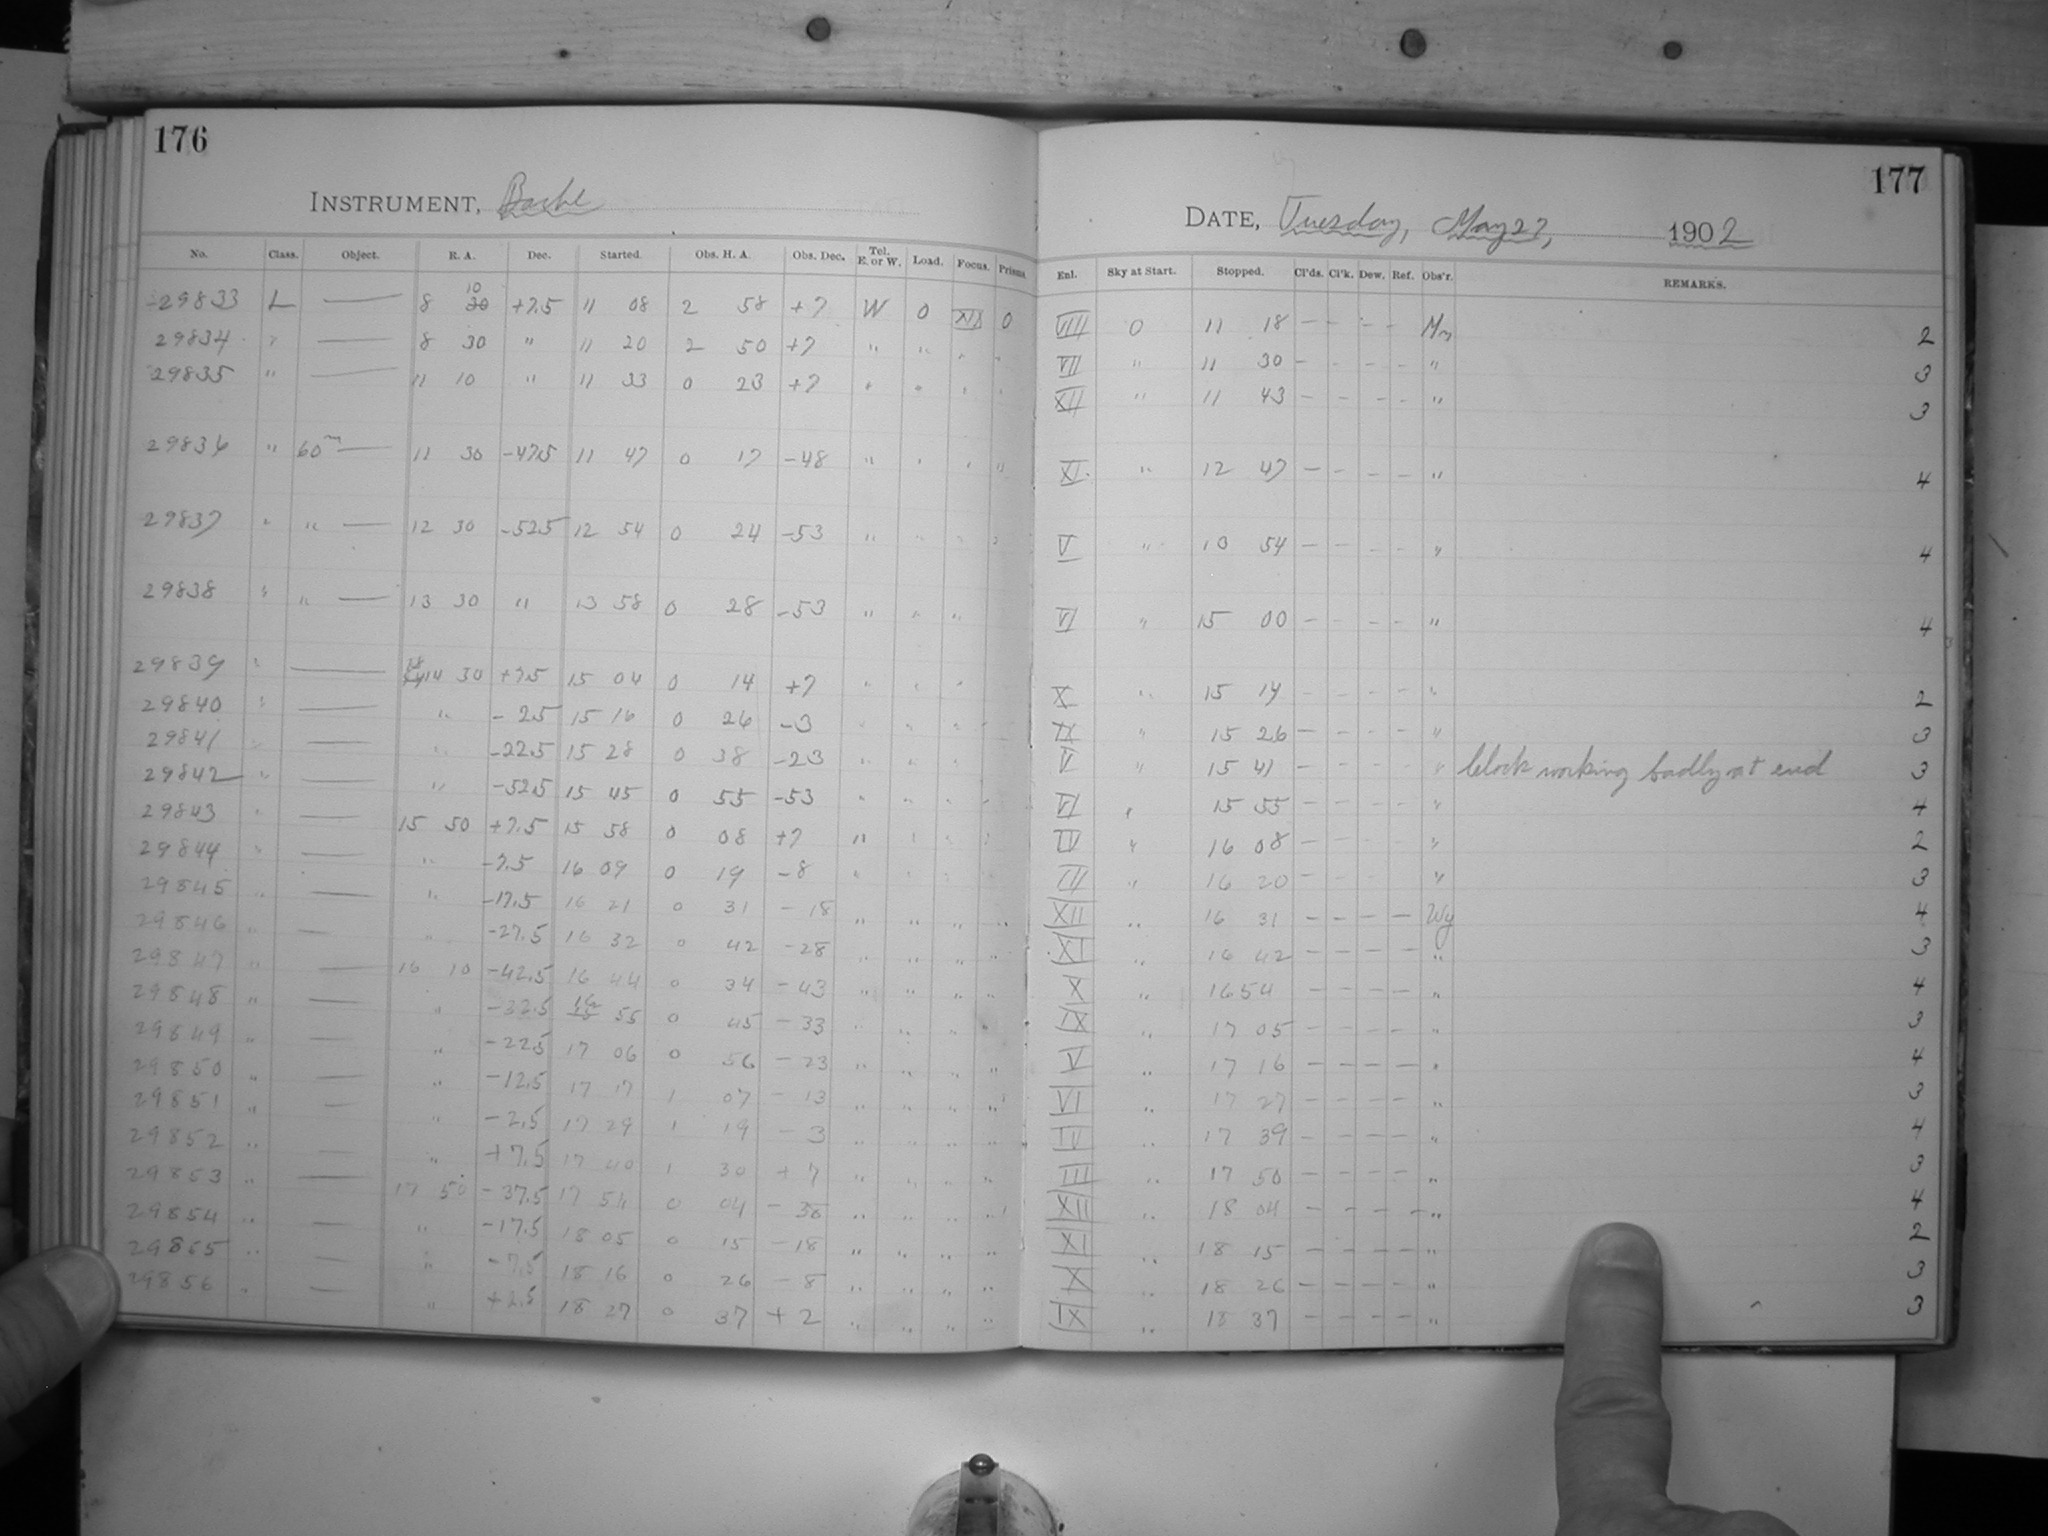 176
INSTRUMENT, Bache
No. Class. Object. R. A. Dec. Started. Obs. H. A. Obs. Dec. Tel. E. or W. Load. Focus. Prisms
29833 L — 8 10 30 +7.5 11 08 2 58 +7 W 0 XII 0
29834 " — 8 30 " 11 20 2 50 +7 " " " "
29835 " — 11 10 " 11 33 0 23 +7 " " " "
29836 " 60m — 11 30 -47.5 11 47 0 17 -48 " " " "
29837 " " — 12 30 -52.5 12 54 0 24 -53 " " " "
29838 " " — 13 30 " 13 58 0 28 -53 " " "
29839 " — 14 30 +7.5 15 04 0 14 +7 " " "
29840 " — " -2.5 15 16 0 26 -3 " " "
29841 " — " -22.5 15 28 0 38 -23 " " " "
29842 " — " -52.5 15 45 0 55 -53 " " " "
29843 " — 15 50 +7.5 15 58 0 08 +7 " " " "
29844 " — " -7.5 16 09 0 19 -8 " " "
29845 " — " -17.5 16 21 0 31 -18 " " " "
29846 " — " -27.5 16 32 0 42 -28 " " " "
29847 " — 16 10 -42.5 16 44 0 34 -43 " " " "
29848 " — " -32.5 16 55 0 45 -33 " " " "
29849 " — " -22.5 17 06 0 56 -23 " " " "
29850 " — " -12.5 17 17 1 07 -13 " " " "
29851 " — " -2.5 17 29 1 19 -3 " " " "
29852 " — " +7.5 17 40 1 30 +7 " " " "
29853 " — 17 50 -37.5 17 54 0 04 -38 " " " "
29854 " — " -17.5 18 05 0 15 -18 " " " "
29855 " — " -7.5 18 16 0 26 -8 " " " "
29856 " — " +2.5 18 27 0 37 +2 " " " "
177
DATE, Tuesday, May 27, 1902
Enl. Sky at Start. Stopped. Cl'ds. Cl'k. Dew. Ref. Obs'r. REMARKS.
VIII 0 11 18 — — — — 2
VII " 11 30 — — — — " 3
XII " 11 43 — — — — " 3
XI " 12 47 — — — — " 4
V " 13 54 — — — — " 4
VI " 15 00 — — — — " 4
X " 15 14 — — — — " 2
IX " 15 26 — — — — " 3
V " 15 41 — — — — " Clock working badly at end 3
VI " 15 55 — — — — " 4
IV " 16 08 — — — — " 2
III " 16 20 — — — — " 3
XII " 16 31 — — — — Wy 4
XI " 16 42 — — — — " 3
X " 16 54 — — — — " 4
IX " 17 05 — — — — " 3
V " 17 16 — — — — " 4
VI " 17 27 — — — — " 3
IV " 17 39 — — — — " 4
III " 17 50 — — — — " 3
XII " 18 04 — — — — " 4
XI " 18 15 — — — — " 2
X " 18 26 — — — — " 3
IX " 18 37 — — — — " 3